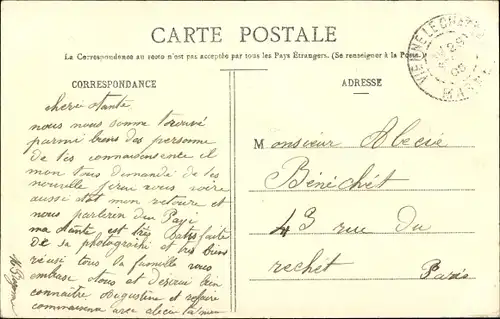 CARTE POSTALE
La Correspondance au recto n'est pas acceptée par tous les Pays Étrangers. (Se renseigner à la Poste)
VIENNE-LE-CHATEAU
CORRESPONDANCE
ADRESSE
cherie tante
nous nous somme trouvé
parmi biens des personne
de tes connaisensente il
mon tous demandé de tes
nouvelle jirai vous voire
aussi tot mon retoure et
nous parleron du Payi
ma tante est très satisfaite
de sa photograchi et très bien
réusi tous la famille vous
embase tous et désirai bien
connaitre Augustine et refaire
connaissance avec
Monsieur Alecie
Bénéchét
43 rue du
rechét
Paris